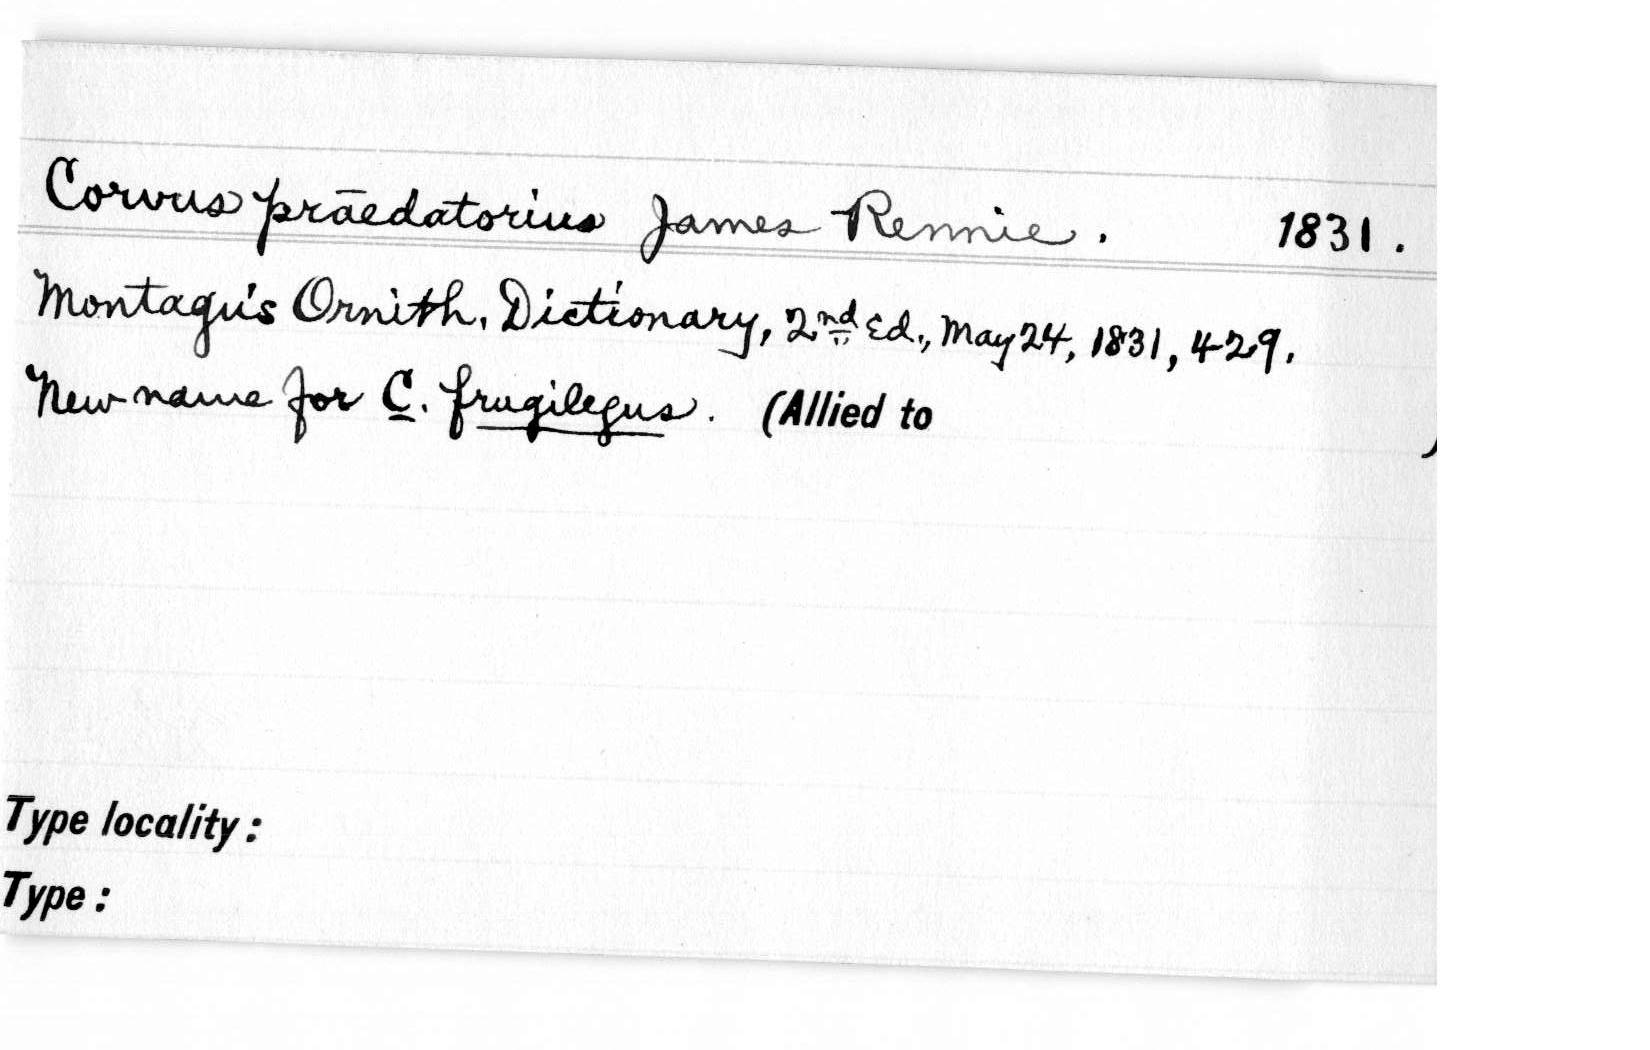 Corvus prāedatorius James Rennie. 1831.
Montagu's Ornith. Dictionary, 2nd Ed., May 24, 1831, 429.
New name for C. frugilegus. (Allied to )
Type locality:
Type: